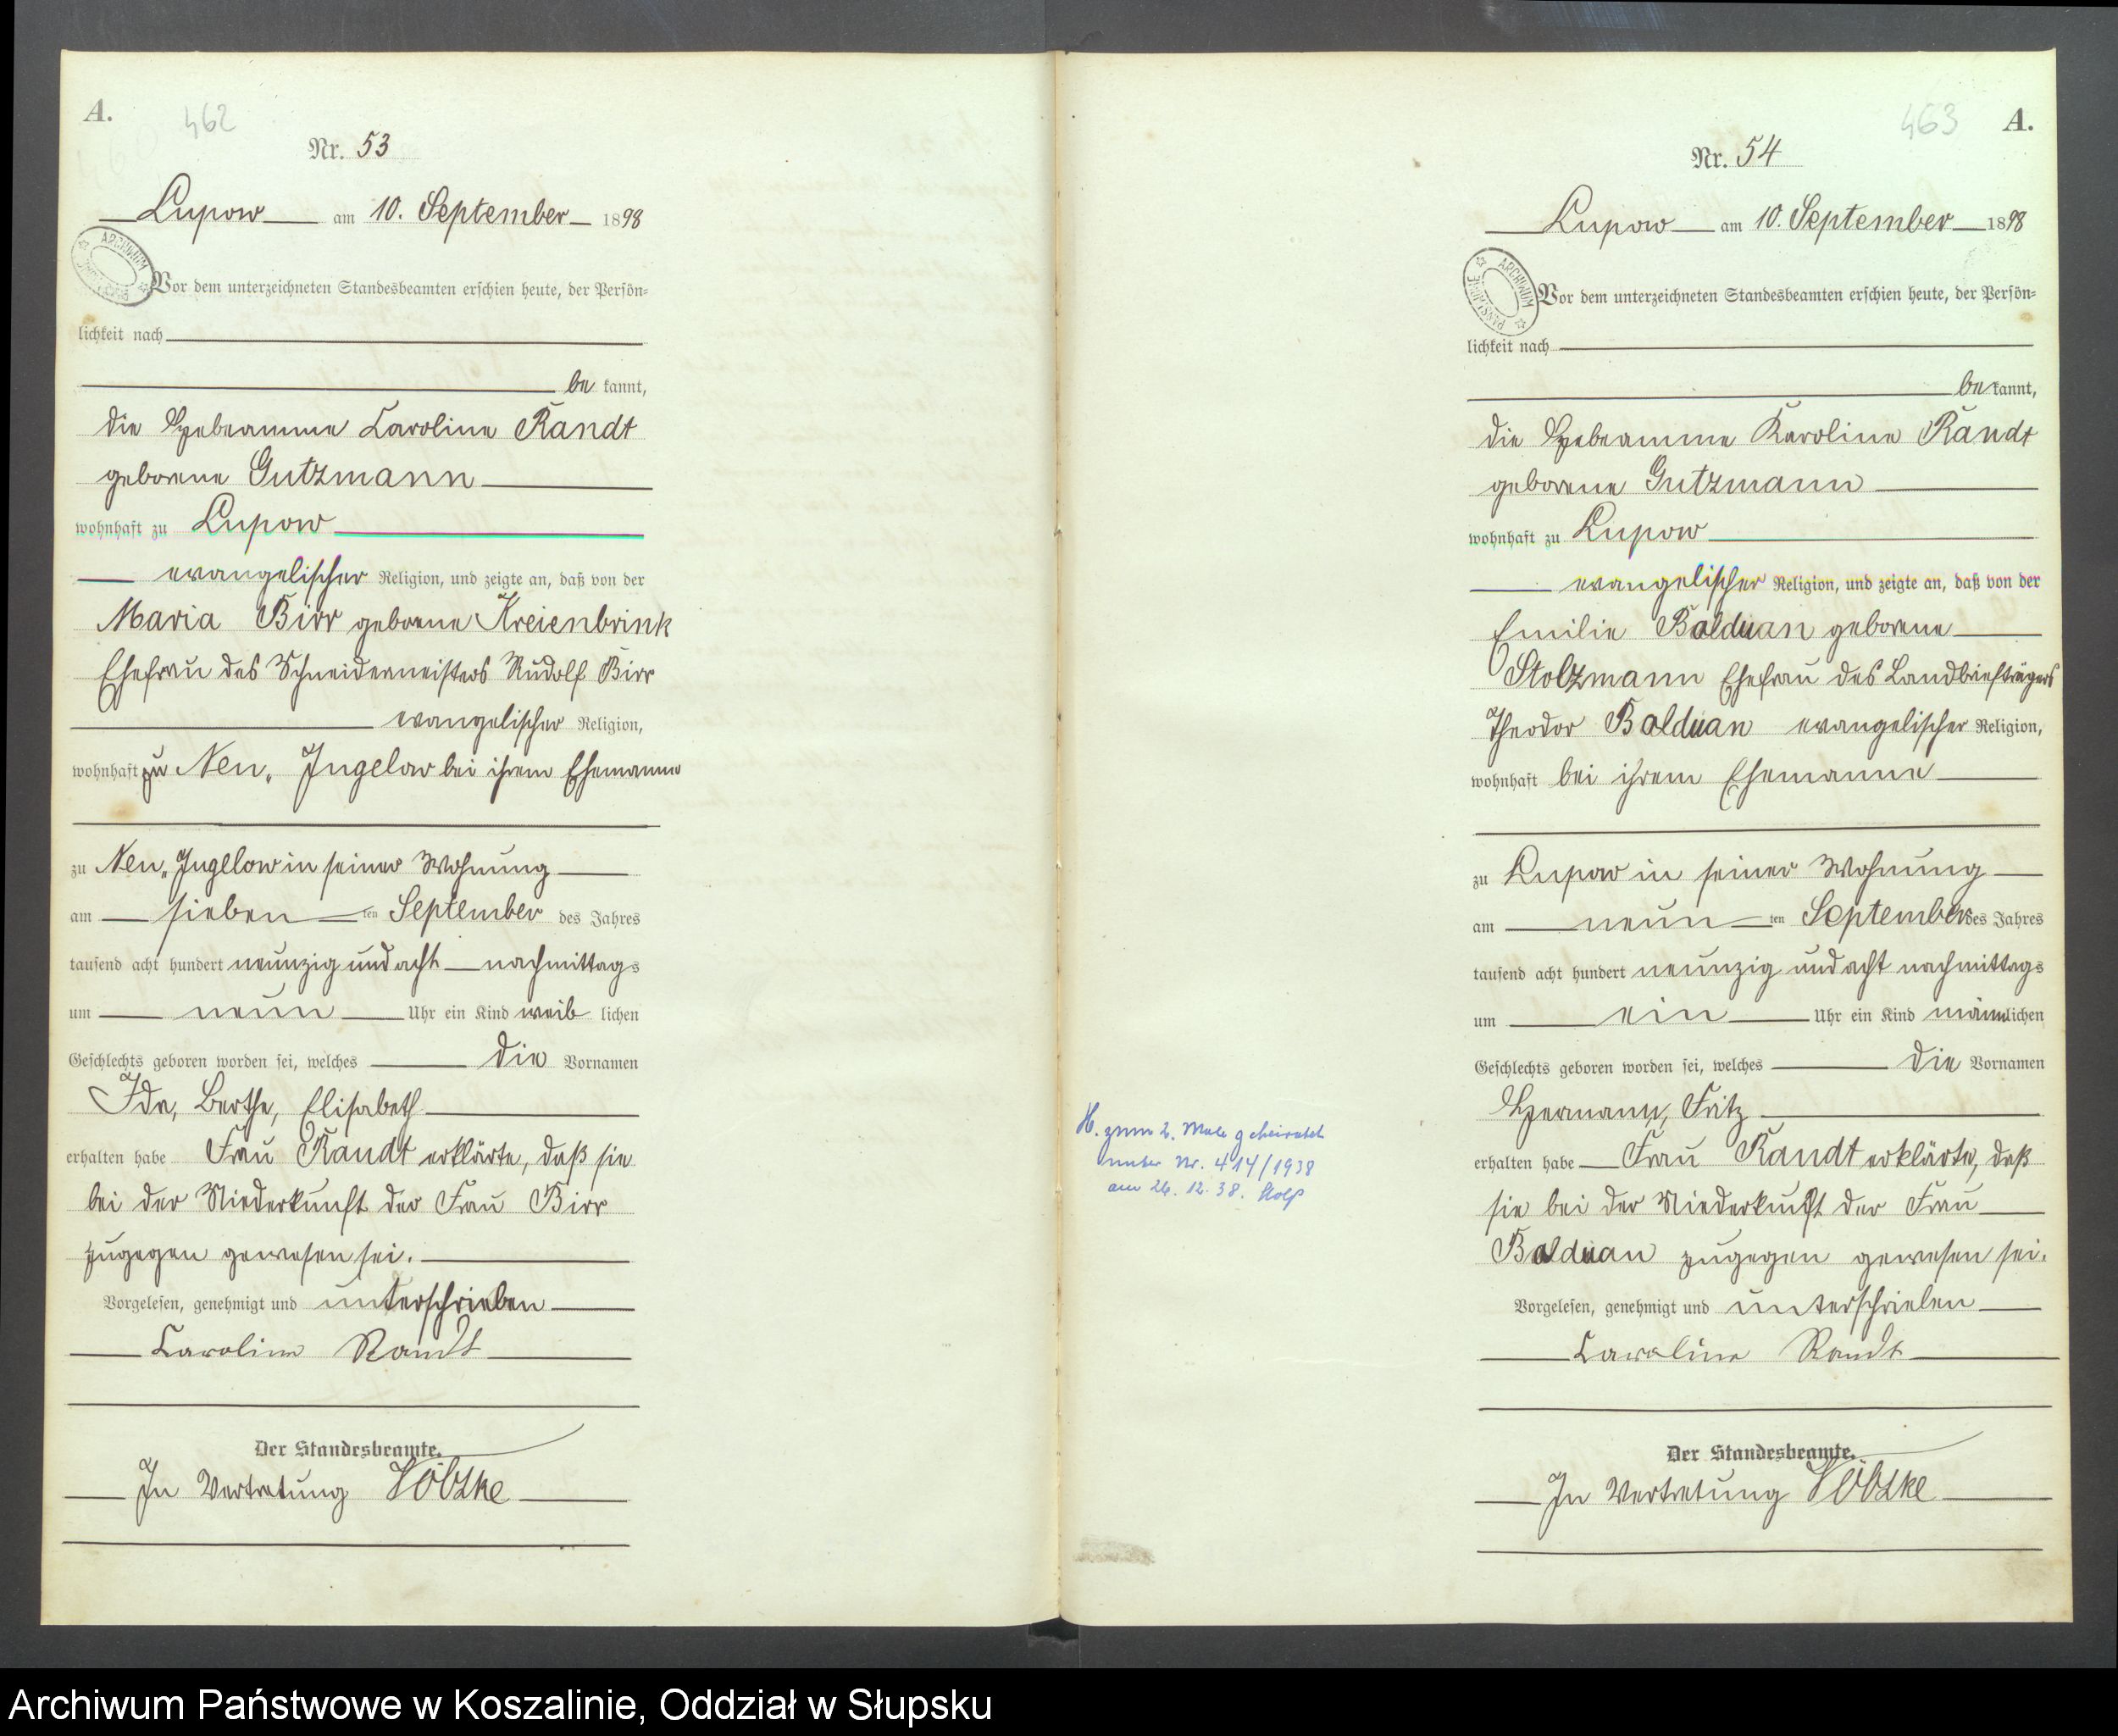 A.
462
Nr. 53
Lupow am 10. September 1898
ARCHIWUM
Vor dem unterzeichneten Standesbeamten erschien heute, der Persön=
lichkeit nach
be kannt,
die Hebeamme Caroline Randt
geborene Gutzmann
wohnhaft zu Lupow
evangelischer Religion, und zeigte an, daß von der
Maria Birr geborene Kreienbrink
Ehefrau des Schneidermeisters Rudolf Birr
evangelischer Religion,
wohnhaft zu Neu„ Jugelow bei ihrem Ehemanne
zu Neu„ Jugelow in seiner Wohnung
am sieben ten September des Jahres
tausend acht hundert neunzig und acht nachmittags
um neun Uhr ein Kind weib lichen
Geschlechts geboren worden sei, welches die Vornamen
Ida, Berthe, Elisabeth
erhalten habe Frau Randt erklärte, daß sie
bei der Niederkunft der Frau Birr
zugegen gewesen sei.
Vorgelesen, genehmigt und unterschrieben
Caroline Randt
Der Standesbeamte.
In Vertretung
463
A.
Nr. 54
Lupow am 10. September 1898
ARCHIWUM PAŃSTWOWE
Vor dem unterzeichneten Standesbeamten erschien heute, der Persön=
lichkeit nach
be kannt,
die Hebeamme Karoline Randt
geborene Gutzmann
wohnhaft zu Lupow
evangelischer Religion, und zeigte an, daß von der
Emilie Balduan geborene
Stolzmann Ehefrau des Landbriefträgers
Theodor Balduan evangelischer Religion,
wohnhaft bei ihrem Ehemanne
zu Lupow in seiner Wohnung
am neun ten September des Jahres
tausend acht hundert neunzig und acht nachmittags
um ein Uhr ein Kind männlichen
Geschlechts geboren worden sei, welches die Vornamen
Hermann, Fritz
erhalten habe Frau Randt erklärte, daß
sie bei der Niederkunft der Frau
Balduan zugegen gewesen sei.
Vorgelesen, genehmigt und unterschrieben
Caroline Randt
Der Standesbeamte.
In Vertretung
H. zum 2. Male geheiratet
unter Nr. 414/1938
am 26. 12. 38. Stolp
Archiwum Państwowe w Koszalinie, Oddział w Słupsku